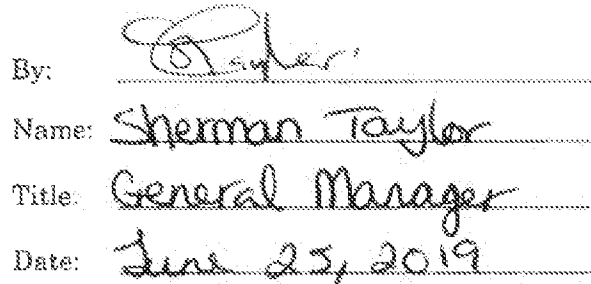 By:
Name: Sherman Taylor
Title: General Manager
Date: June 25, 2019